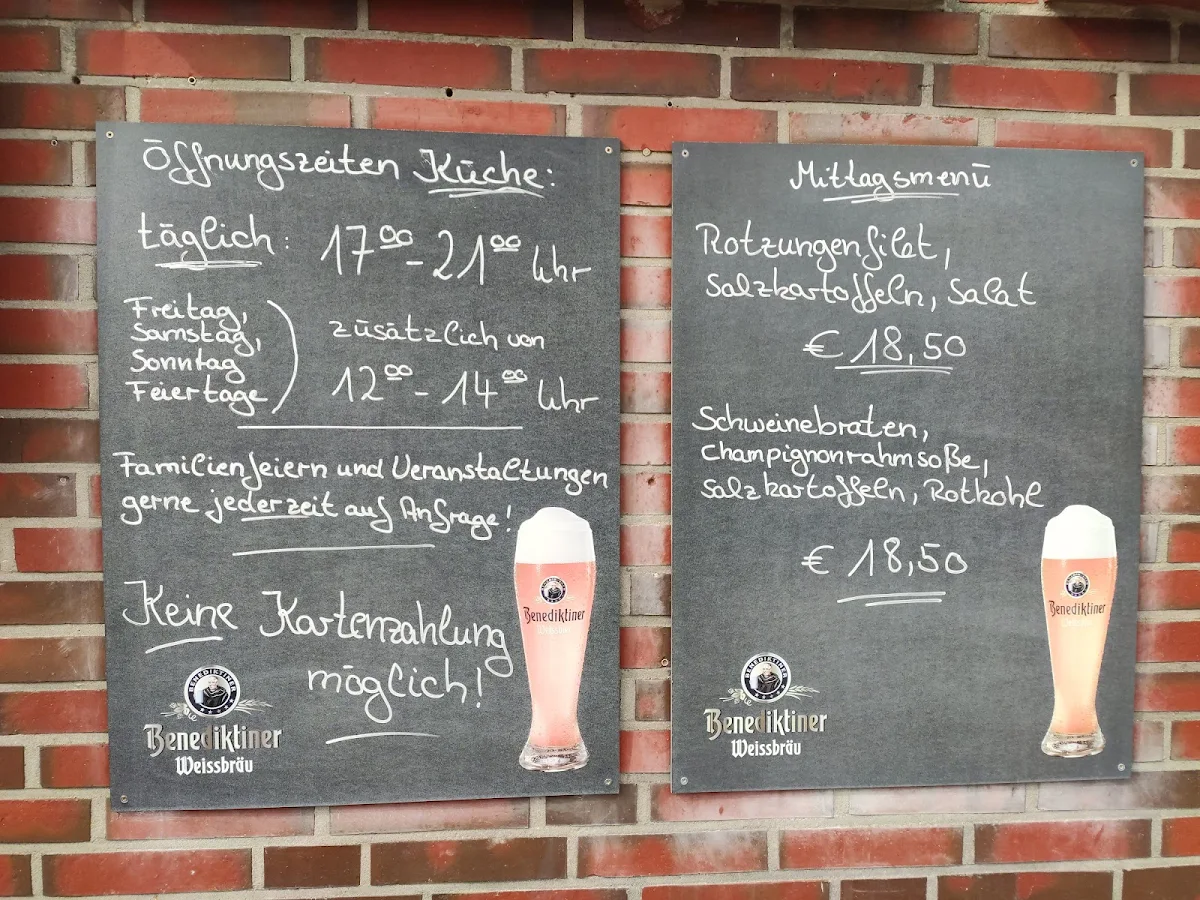 Öffnungszeiten Küche:
täglich: 17⁰⁰-21⁰⁰ Uhr
Freitag,
Samstag,
Sonntag
Feiertage
zusätzlich von
12⁰⁰-14⁰⁰ Uhr
Familienfeiern und Veranstaltungen
gerne jederzeit auf Anfrage!
Keine Kartenzahlung
möglich!
BENEDIKTINER
Benediktiner
Weissbräu
Benediktiner
Mittagsmenü
Rotzungenfilet,
Salzkartoffeln, Salat
€ 18,50
Schweinebraten,
Champignonrahmsoße,
Salzkartoffeln, Rotkohl
€ 18,50
BENEDIKTINER
Benediktiner
Weissbräu
Benediktiner